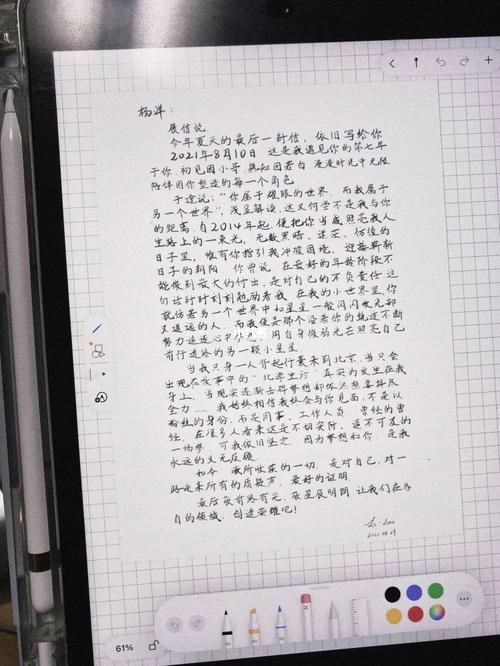 杨洋：
展信悦
今年夏天的最后一封信，依旧写给你
2021年8月10日 这是我遇见你的第七年
于你，初见因小哥，熟知因若白 漫漫时光中无限
陪伴因你塑造的每一个角色
于途说：“你属于耀眼的世界，而我属于
另一个世界”，浅显解读，这又何尝不是我与你
的距离，自2014年起，便把你当成照亮我人
生路上的一束光，无数黑暗、迷茫、彷徨的
日子里，唯有你指引我冲破困境，迎接崭新
日子的朝阳 你曾说，在最好的年龄阶段不
能做到最大的付出，是对自己的不负责任 这
句话时时刻刻激励着我 在我的小世界里，你
就仿若另一个世界中和星星一般闪闪发光却
又遥远的人，而我便是那个沿着你的轨迹不断
努力追逐心中 用自身微弱光芒照亮自己
前行道路的另一颗小星星
当我只身一人背起行囊来到北京，当只会
出现在故事中的“北漂生活”真实的发生在我
身上，当现实逐渐击碎梦想却依然想要拼尽
全力…… 我始终相信我终会与你见面，不是以
粉丝的身份，而是同事、工作人员 曾经的曾
经，在很多人看来这是不切实际、遥不可及的
一场梦 可我依旧坚定 因为梦想和你，是我
永远的义无反顾
如今 我所收获的一切，是对自己，对一
路走来所有的质疑声，最好的证明
最后 候有光，夜星辰明朗 让我们在各
自的领域，创造荣耀吧！
2021.08.09
61%